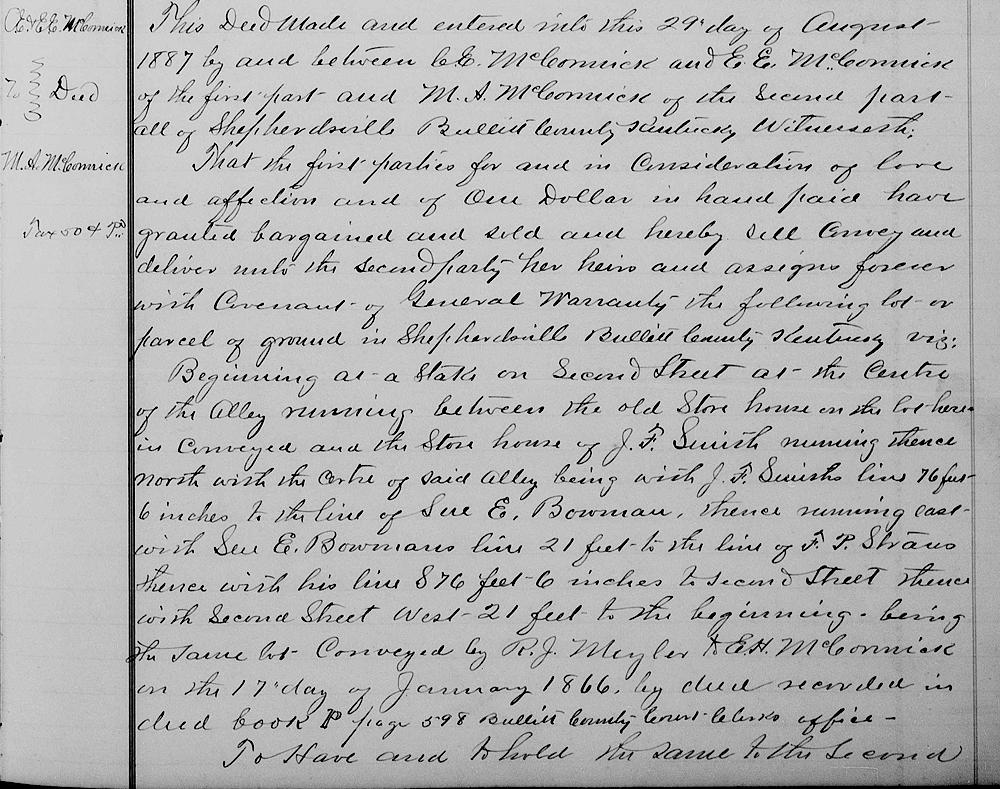 C.E. & E.E. McCormick
To Deed
M. A. McCormick
Tax 50 ¢ Pd.
This Deed Made and entered into this 29" day of August
1887 by and between C.E. McCormick and E.E. McCormick
of the first part and M. A. McCormick of the Second part
all of Shepherdsville Bullitt County Kentucky Witnesseth;
That the first parties for and in Consideration of love
and affection and of One Dollar in hand paid have
granted bargained and sold and hereby sell Convey and
deliver unto the second party her heirs and assigns forever
with Covenant of General Warranty the following lot or
parcel of ground in Shepherdsville Bullitt County Kentucky viz:
Beginning at a Stake on Second Street at the Centre
of the Alley running between the old Store house on the lot here-
in Conveyed and the Store house of J. F. Smith running thence
North with the Centre of said Alley being with J. F. Smiths line 76 feet
6 inches to the line of Sue E. Bowman, thence running east
with Sue E. Bowmans line 21 feet to the line of F. P. Straus
thence with his line S 76 feet 6 inches to second Street thence
with Second Street West 21 feet to the beginning. being
the same lot Conveyed by R. J. Meyler to E.H. McCormick
on the 17" day of January 1866, by deed recorded in
deed book P page 598 Bullitt County Court Clerks office -
To Have and to hold the same to the Second